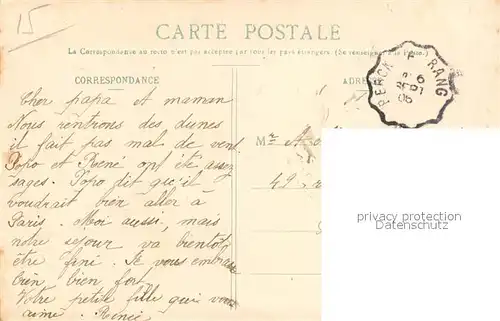 15
CARTE POSTALE
La Correspondance au recto n'est pas acceptée par tous les pays étrangers. (Se renseigner à la Poste)
CORRESPONDANCE
ADRE
Cher papa et maman
Nous rentrons des dunes
il fait pas mal de vent
Popo et René ont été assez
sages. Popo dit qu'il
voudrait bien aller à
Paris. Moi aussi, mais
notre sejour va bientôt
être fini. Je vous embrasse
bien, bien fort
Votre petite fille qui vous
aime. Renée
Mr A
49
RANG
6
06
privacy protection
Datenschutz